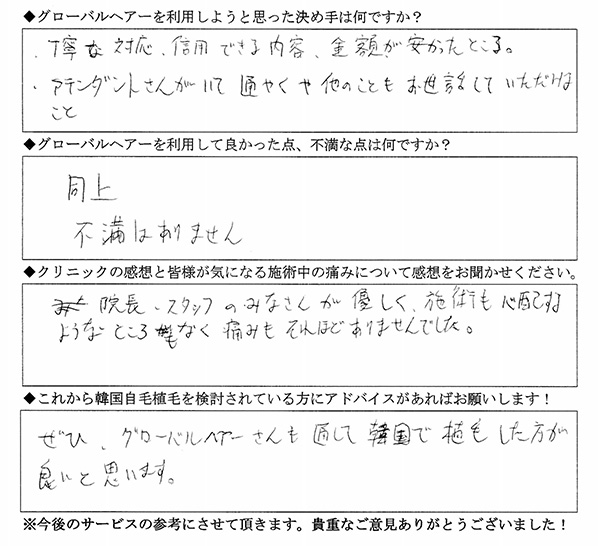 ◆グローバルヘアーを利用しようと思った決め手は何ですか？
・丁寧な対応、信用できる内容、金額が安かったところ。
・アテンダントさんがいて通やくや他のこともお世話していただける
こと
◆グローバルヘアーを利用して良かった点、不満な点は何ですか？
同上
不満はありません
◆クリニックの感想と皆様が気になる施術中の痛みについて感想をお聞かせください。
院長、スタッフのみなさんが優しく、施術も心配する
ようなところもなく痛みもそれほどありませんでした。
◆これから韓国自毛植毛を検討されている方にアドバイスがあればお願いします！
ぜひ、グローバルヘアーさんを通して韓国で植毛した方が
良いと思います。
※今後のサービスの参考にさせて頂きます。貴重なご意見ありがとうございました！